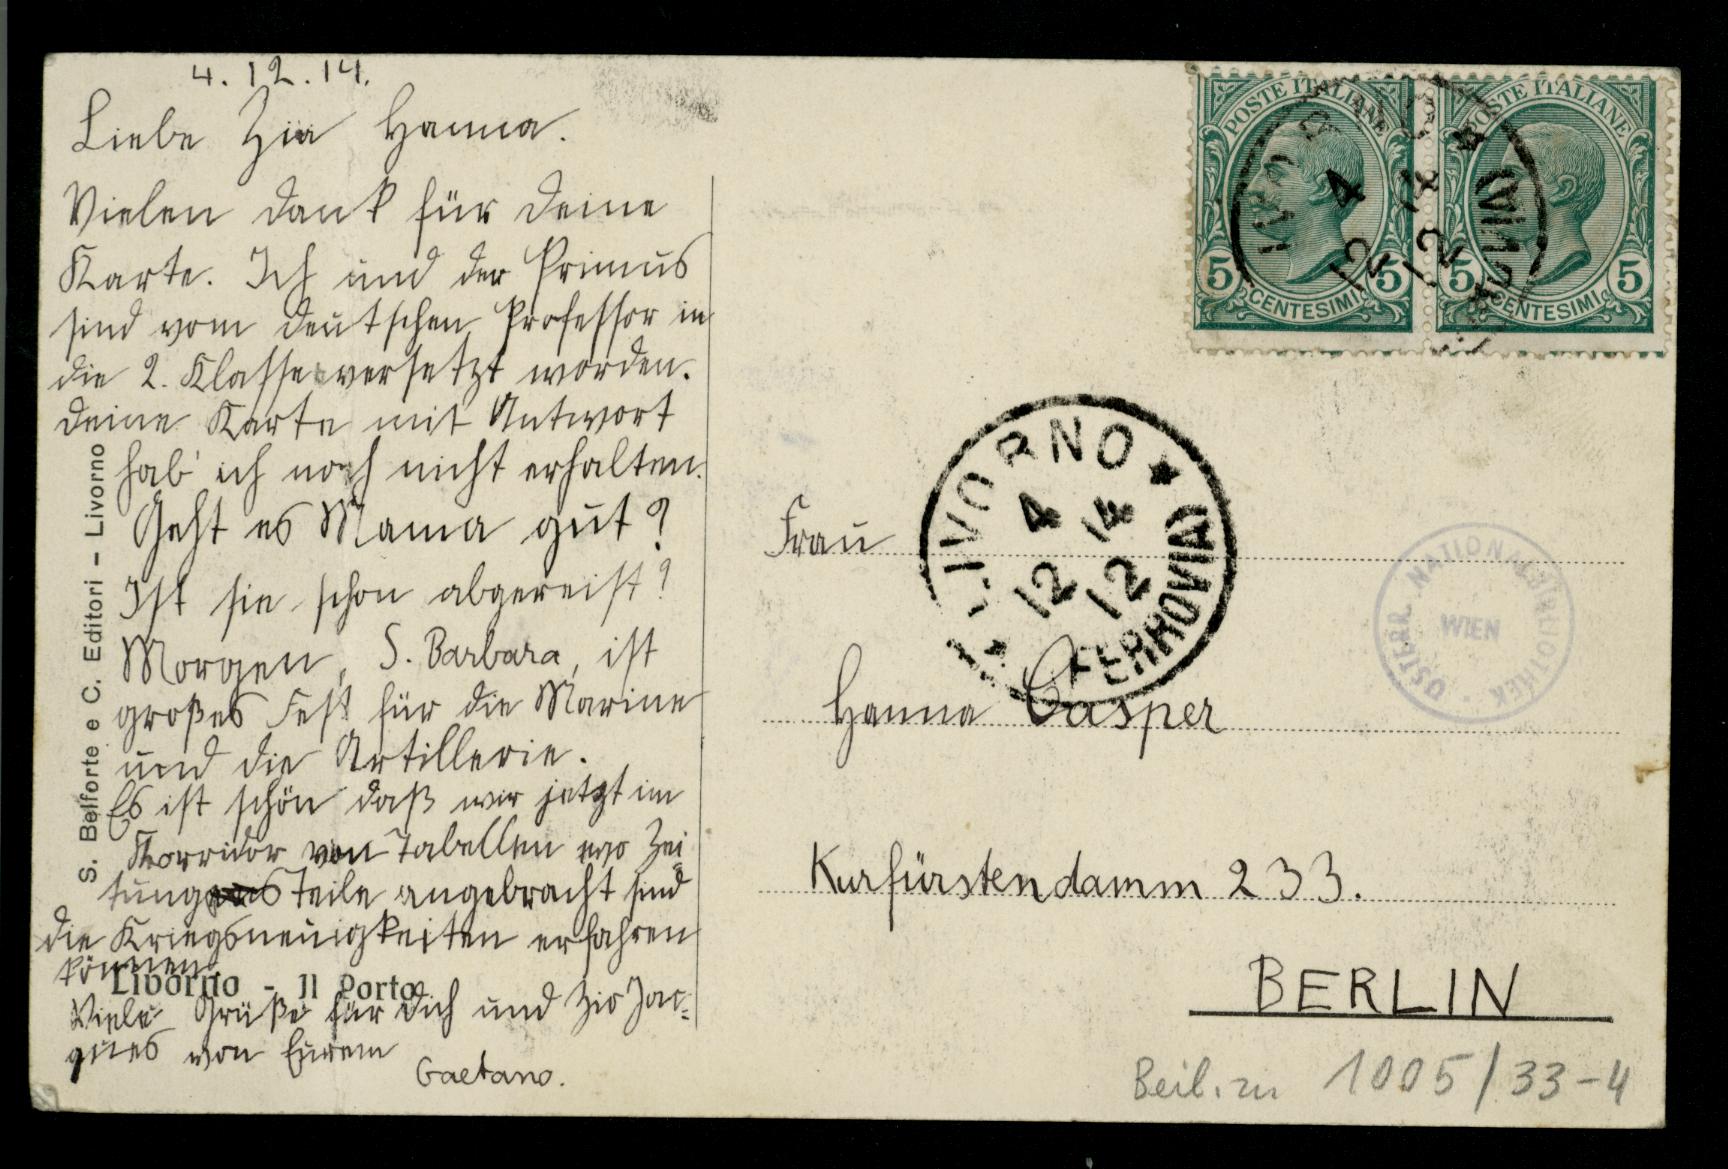 4.12.14.
Liebe Zia Hanna.
Vielen Dank für Deine
Karte. Ich und der Primus
sind vom deutschen Professor in
die 2. Klasse versetzt worden.
Deine Karte mit Antwort
hab' ich noch nicht erhalten.
Geht es Mama gut?
Ist sie schon abgereist?
Morgen, S. Barbara, ist
großes Fest für die Marine
und die Artillerie.
Es ist schön daß wir jetzt im
Korridor von Tabellen wo Zei
tungs Teile angebracht sind
die Kriegsneuigkeiten erfahren
können
Viele Grüße für Dich und Zio Jac=
ques von Eurem
Gaetano.
S. Belforte e C. Editori - Livorno
Livorno - Il Porto
POSTE ITALIANE
5 CENTESIMI 5
POSTE ITALIANE
5 CENTESIMI 5
LIVORNO
4 12
14 12
FERROVIA
Frau
Hanna Casper
Kurfürstendamm 233.
BERLIN
ÖSTERR. NATIONALBIBLIOTHEK
WIEN
Beil. zu 1005/33-4